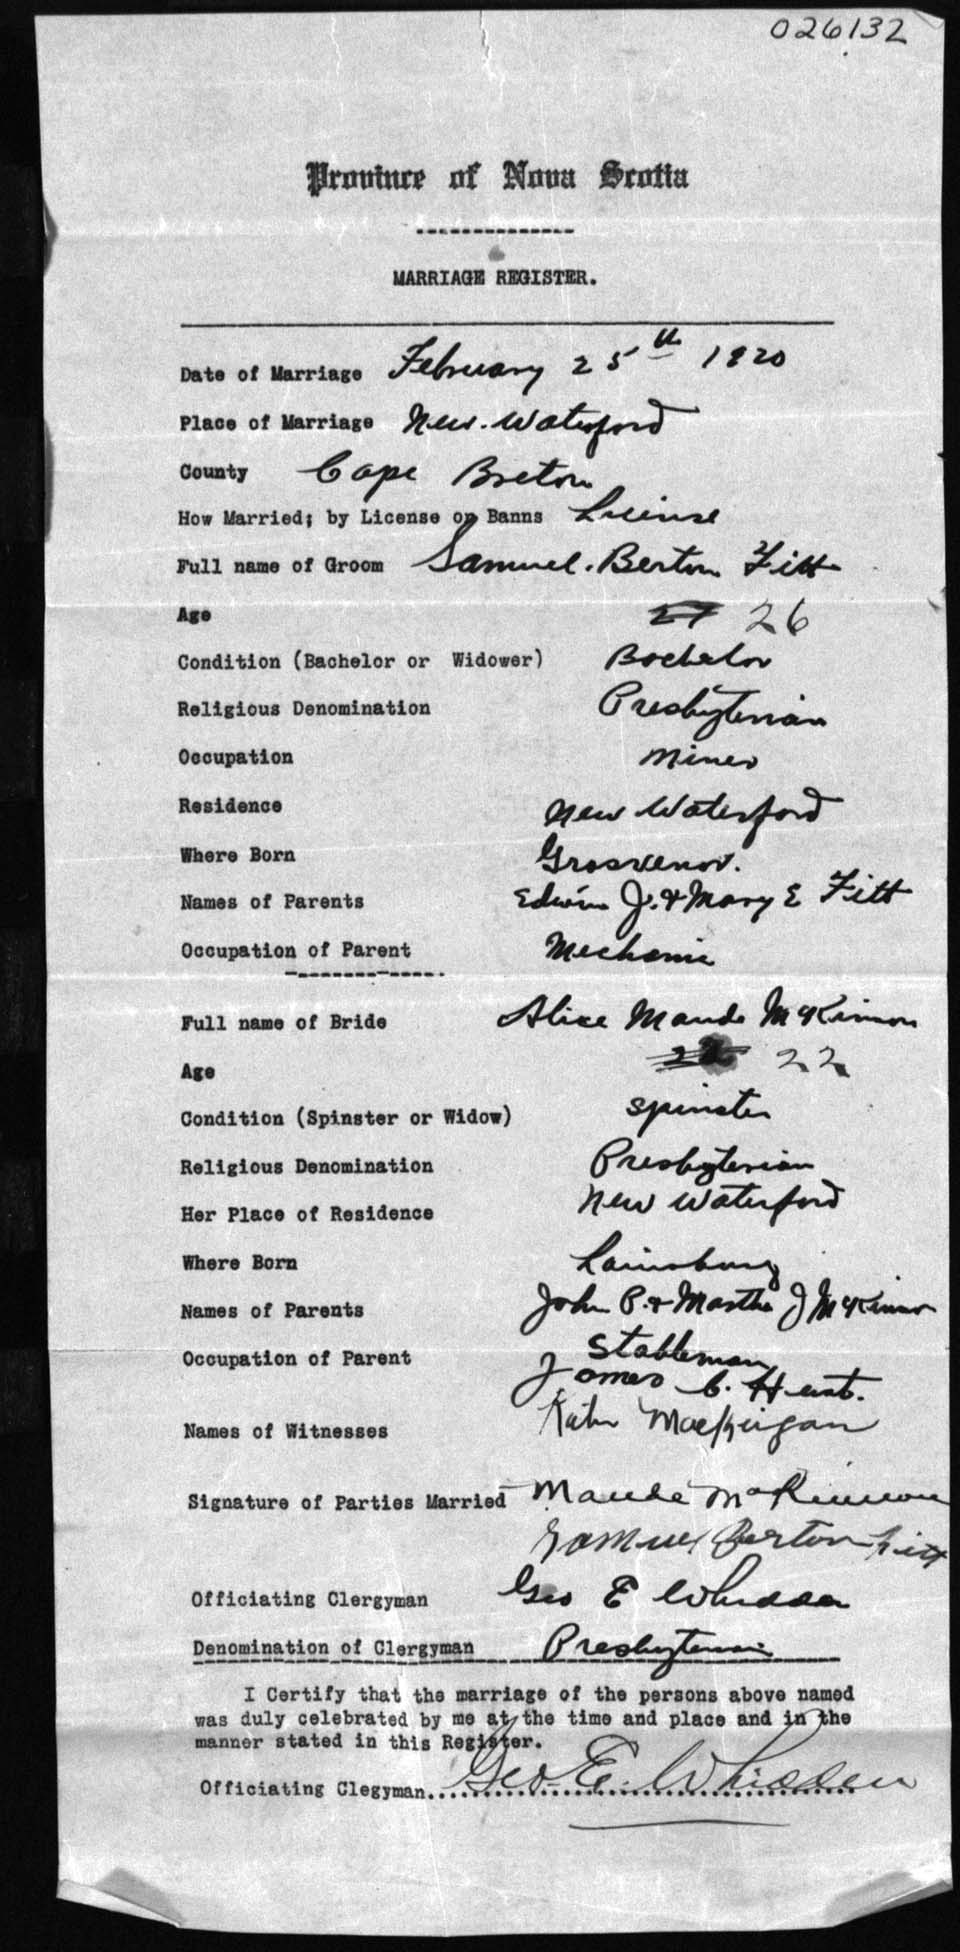 026132
Province of Nova Scotia
MARRIAGE REGISTER.
Date of Marriage February 25th 1920
Place of Marriage New. Waterford
County Cape Breton
How Married; by License or Banns License
Full name of Groom Samuel. Berton Fitt
Age 27 26
Condition (Bachelor or Widower) Bachelor
Religious Denomination Presbyterian
Occupation Miner
Residence New Waterford
Where Born Grosvenor.
Names of Parents Edwin J. & Mary E Fitt
Occupation of Parent Mechanic
Full name of Bride Alice Maude McKinnon
Age 22
Condition (Spinster or Widow) Spinster
Religious Denomination Presbyterian
Her Place of Residence New Waterford
Where Born
Names of Parents John P. & Martha J McKinnon
Occupation of Parent Stableman
James C.
Names of Witnesses MacKeigan
Signature of Parties Married Maude McKinnon
Samuel Berton Fitt
Officiating Clergyman Geo E Whidden
Denomination of Clergyman Presbyterian
I Certify that the marriage of the persons above named
was duly celebrated by me at the time and place and in the
manner stated in this Register.
Officiating Clegyman Geo. E. Whidden